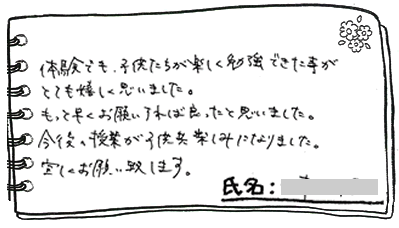 体験でも、子供たちが楽しく勉強できた事が
とても嬉しく思いました。
もっと早くお願いすれば良ったと思いました。
今後の授業が子供共楽しみになりました。
宜しくお願い致します。
氏名: